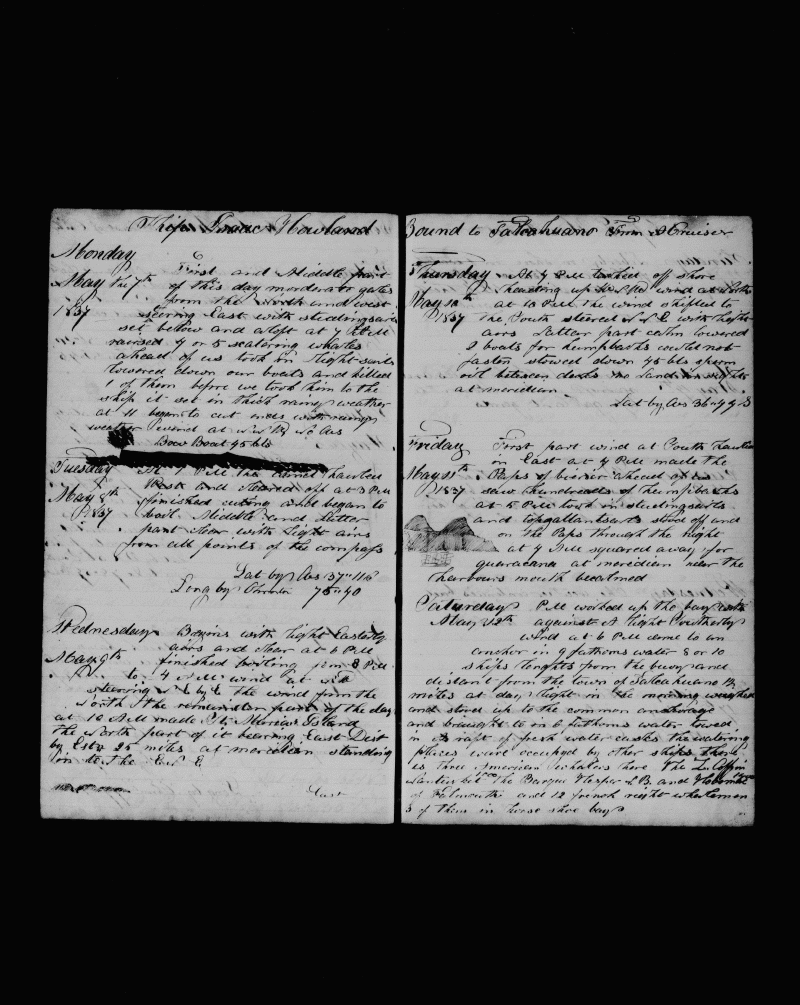 Ship Isaac Howland
Monday
May the 7th First and Middle part
of this day morderator gales
1837 from the North and west
steering East with studingsails
set below and aloft at 7 AM
raised 4 or 5 scatering whales
ahead of us took in light sails
lowered down our boats and killed
1 of them before we took him to the
ship it set in thick rainy weather
at 11 began to cut ends with rainy
weather wind at
Bow Boat 45 bls
Tuesday PM the wind hauled
West and cleared off at 3 PM
May 8th finished cutting and began to
1837 boil Middle and Latter
part clear with Light airs
from all points of the compass
Lat by Obs 37" 11 S
Long by Chron 75" 40
Wednesday Begins with light Easterly
airs and clear at 6 PM
May 9th finished boiling 8 PM
to 4 AM wind at
steering by the wind from the
North the remainder part of the day
at 10 AM made St Marias Island
the North part of it bearing East Dist
by Est 25 miles at meridian standing
in to the E
Last
Bound to Talcahuano From A Cruise
Thursday At 4 PM tacked off shore
heading up wind at
May 10th at 10 PM the wind shifted to
1837 the South steered with light
airs Latter part calm lowered
2 boats for humpbacks could not
fasten stowed down 45 bls sperm
oil between decks no land in sight
at meridian
Lat by Obs 36"49 S
Friday First part wind at South hauled
in East at 4 PM made the
May 11th Paps of ahead
1837 saw hundreds of humpbacks
at 5 PM took in studingsails
and topgallantsails stood off and
on the Paps through the night
at 4 AM squared away for
at meridian near the
harbours mouth becalmed
Saturday PM worked up the bay
May 12th against A light Southerly
wind at 6 PM came to an
anchor in 9 fathoms water 8 or 10
ships lengths from the buoy and
distant from the town of Talcahuano
miles at day light in the morning weighed
and stood up to the common anchorage
and brought to in 6 fathoms water towed
in A raft of fresh water casks the watering
places were occupyed by other ships there
is three American whalers here The Coffin
the Barque Vesper N.B. and
of Falmouth and 12 french right whalemen
3 of them in horse shoe bay